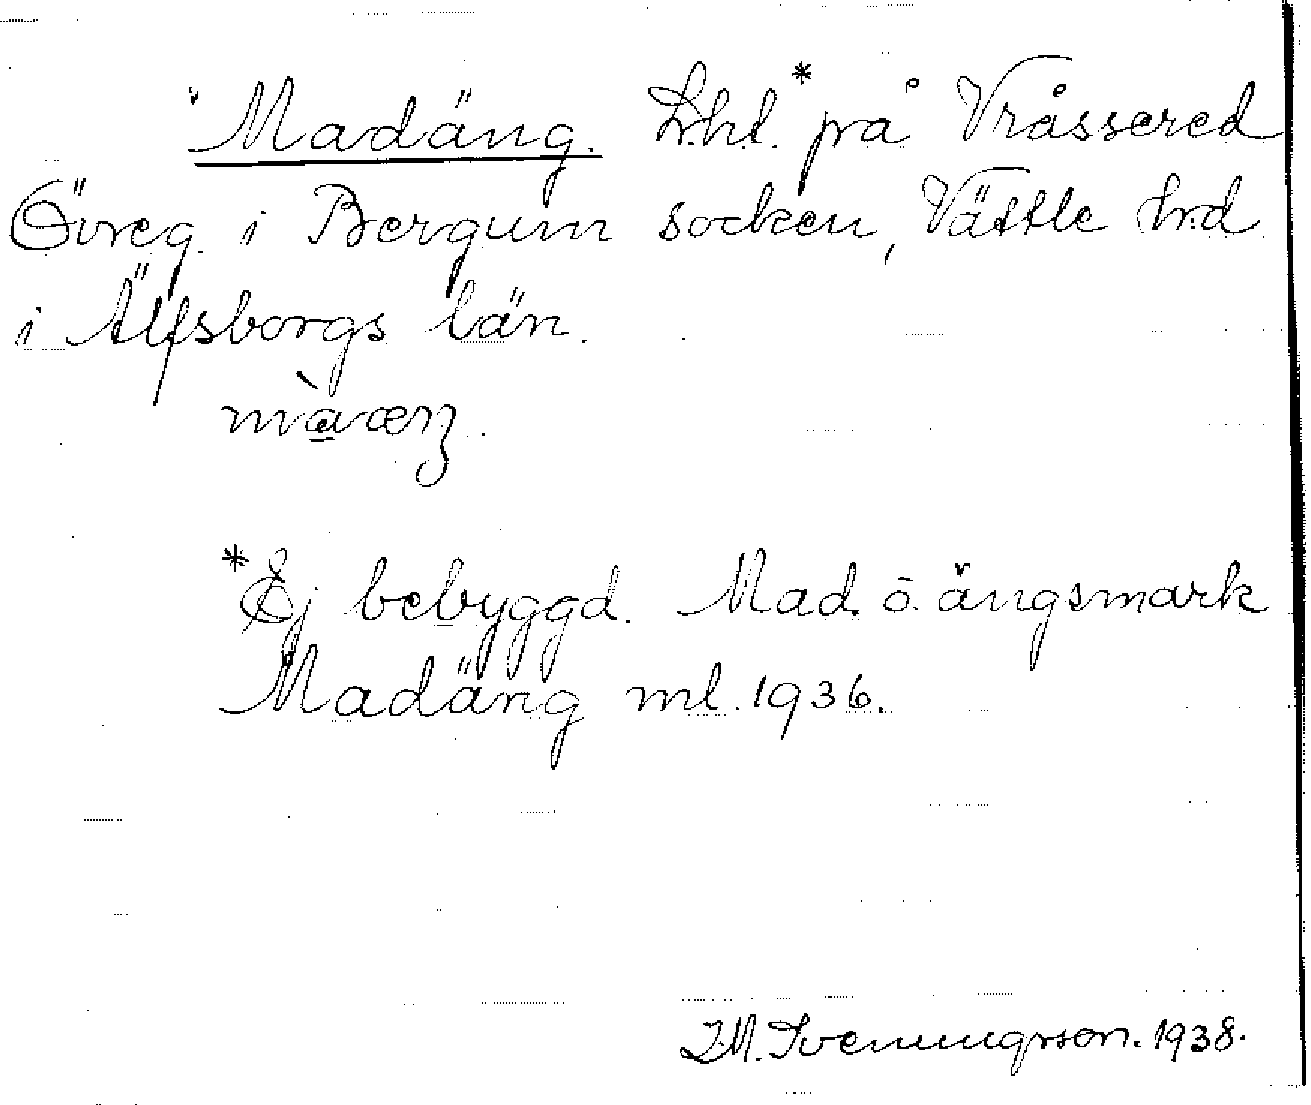 Madäng. Lht.* på Vråssered
Övreg. i Bergum socken, Vättle hrd
i Älfsborgs län.
màværz.
*Ej bebyggd. Mad. o. ängsmark
Madäng ml. 1936.
J.M. Sveningsson. 1938.